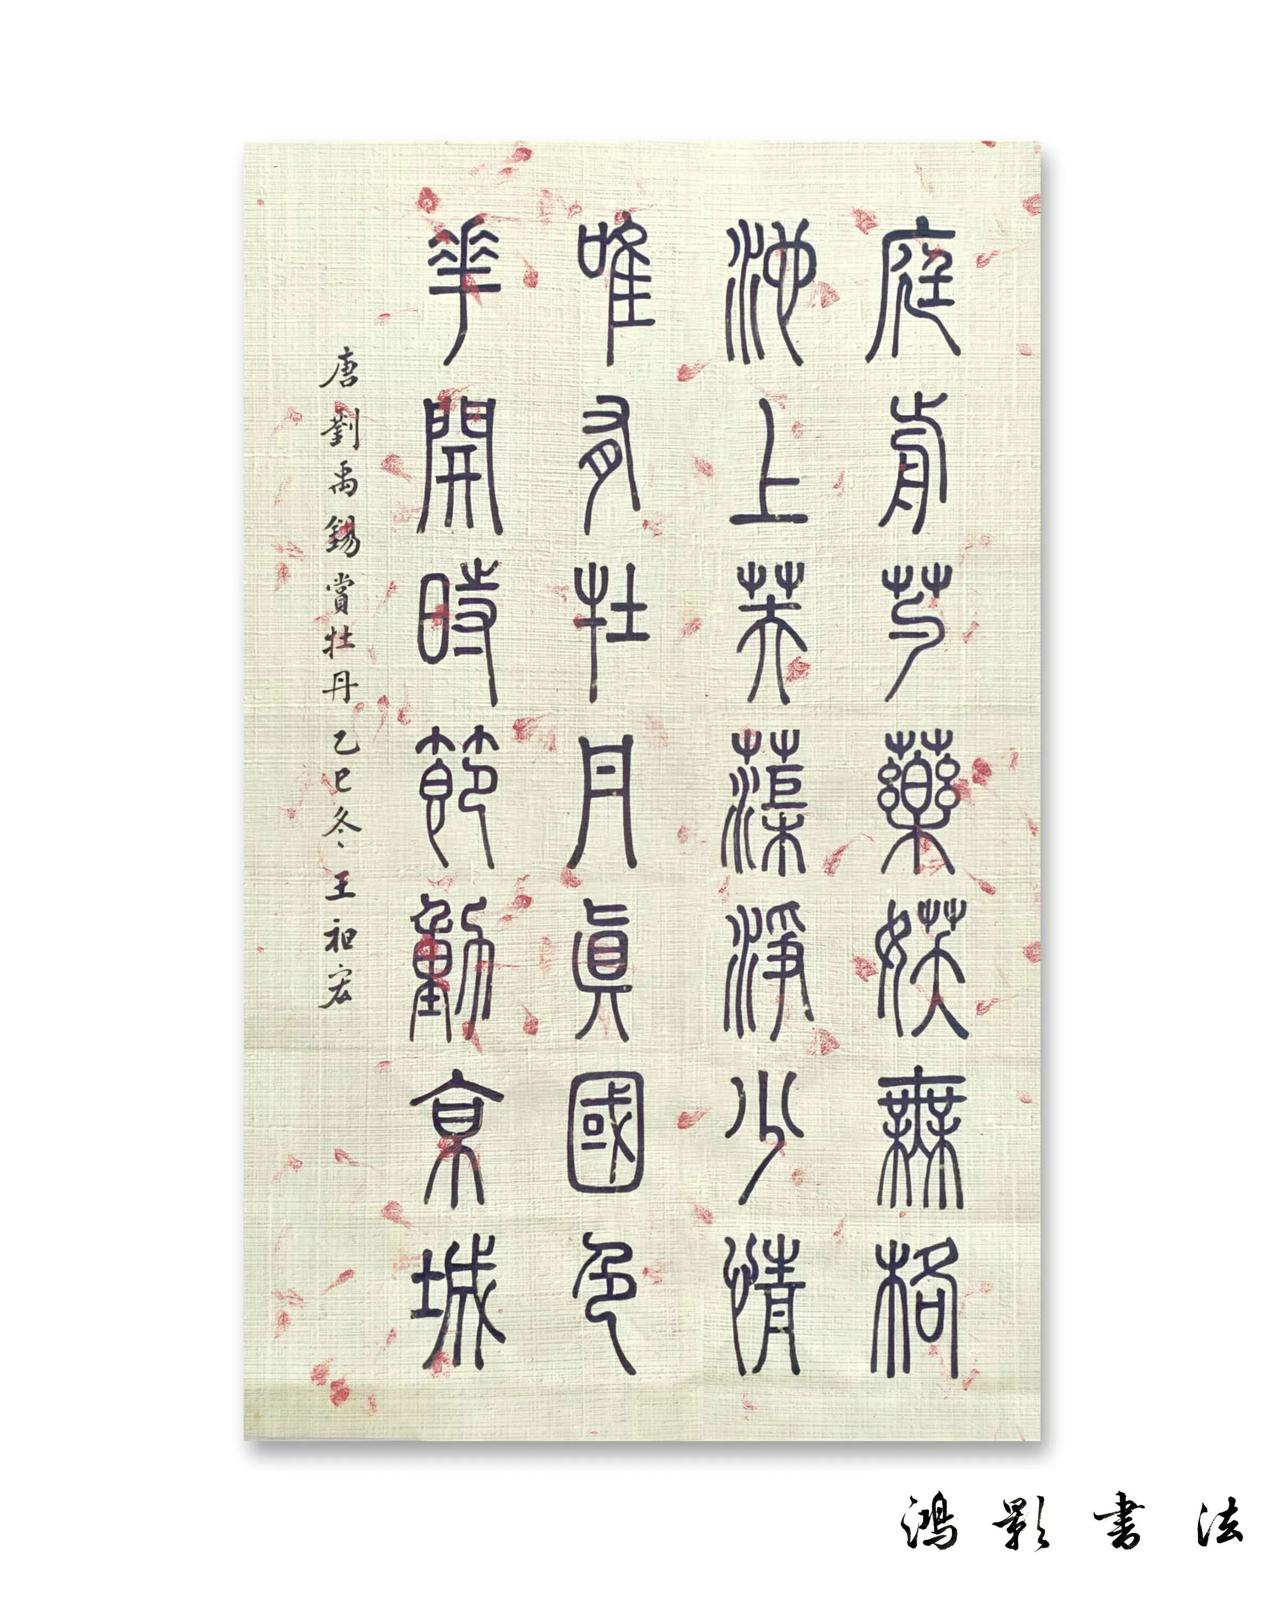 庭前芍藥妖無格
池上芙蕖淨少情
唯有牡丹眞國色
華開時節動京城
唐劉禹錫賞牡丹乙巳冬王宏
鴻影書法